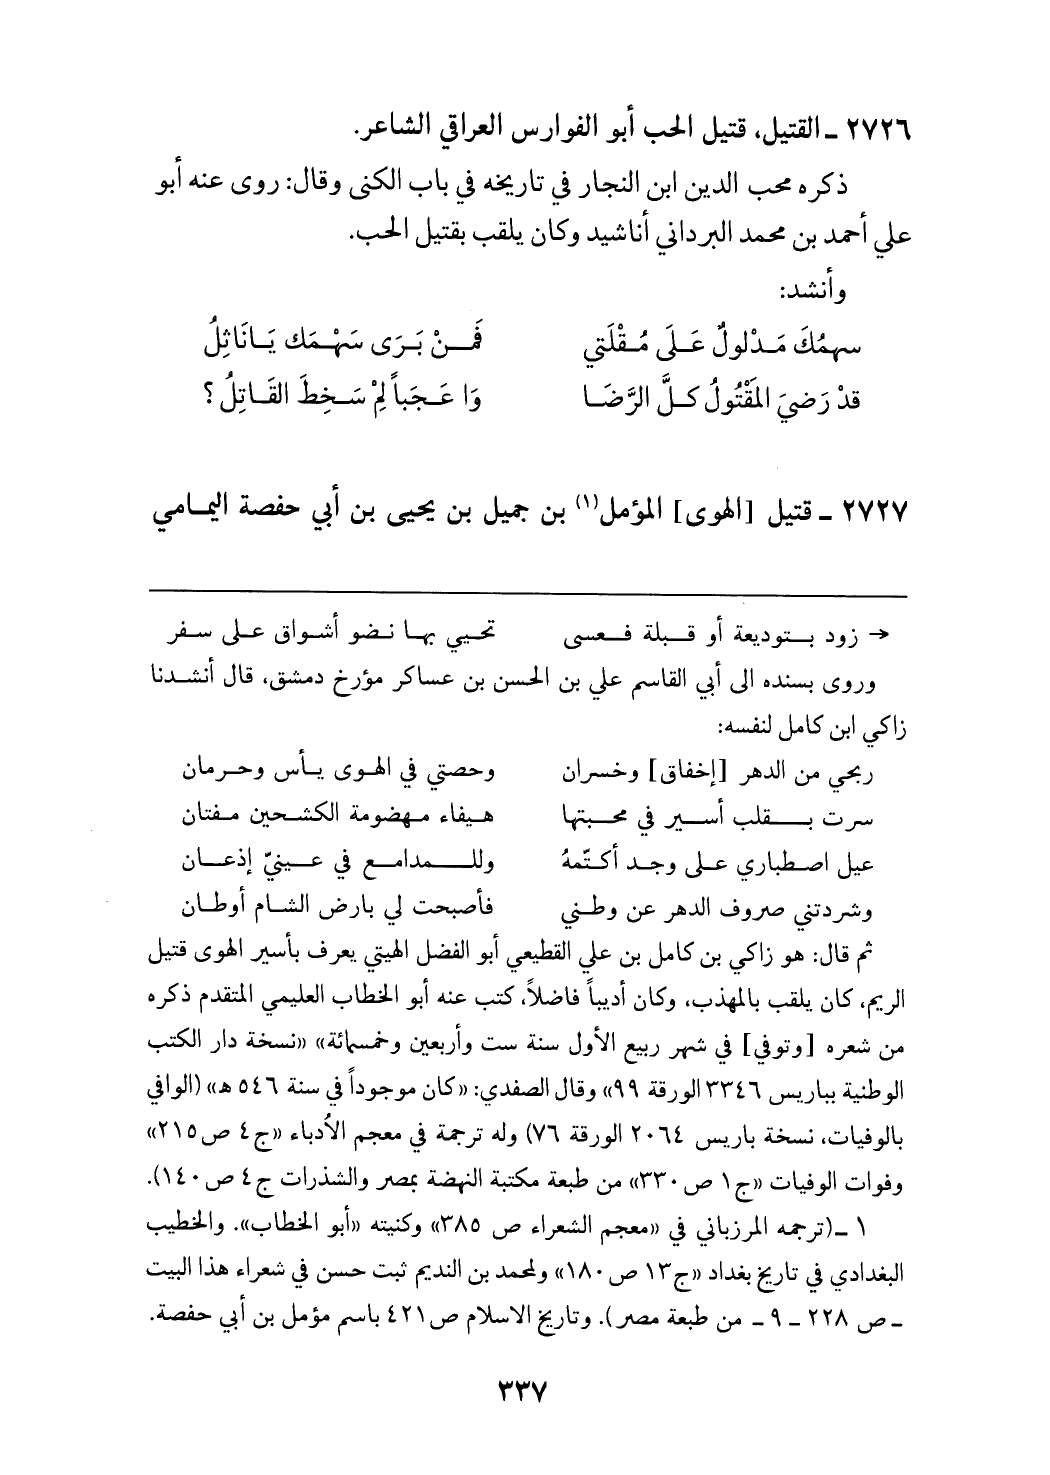 ٢٧٢٦ ـ القتيل، قتيل الحب أبو الفوارس العراقي الشاعر.
ذكره محب الدين ابن النجار في تاريخه في باب الكنى وقال: روى عنه أبو
علي أحمد بن محمد البرداني أناشيد وكان يلقب بقتيل الحب.
وأنشد:
سهمُكَ مَدْلولٌ عَلَى مُقْلَتي فَمنْ بَرَى سَهْمَك يَانَاثِلُ
قدْ رَضيَ المَقْتُولُ كلَّ الرَّضَا وَا عَجَباً لِمْ سَخِطَ القَاتِلُ ؟
٢٧٢٧ ـ قتيل [الهوى] المؤمل(١) بن جميل بن يحيى بن أبي حفصة اليمامي
→ زود بتوديعة أو قبلة فعسى تحيي بها نضو أشواق على سفر
وروى بسنده الى أبي القاسم علي بن الحسن بن عساكر مؤرخ دمشق، قال أنشدنا
زاكي ابن كامل لنفسه:
ربحي من الدهر [إخفاق] وخسران وحصتي في الهوى يأس وحرمان
سرت بقلب أسير في محبتها هيفاء مهضومة الكشحين مفتان
عيل اصطباري على وجد أكتّمهُ وللمدامع في عينيّ إذعان
وشردتني صروف الدهر عن وطني فأصبحت لي بارض الشام أوطان
ثم قال: هو زاكي بن كامل بن علي القطيعي أبو الفضل الهيتي يعرف بأسير الهوى قتيل
الريم، كان يلقب بالمهذب، وكان أديباً فاضلاً، كتب عنه أبو الخطاب العليمي المتقدم ذكره
من شعره [وتوفي] في شهر ربيع الأول سنة ست وأربعين وخمسمائة» «نسخة دار الكتب
الوطنية بباريس ٣٣٤٦ الورقة ٩٩» وقال الصفدي: «كان موجوداً في سنة ٥٤٦ هـ» (الوافي
بالوفيات، نسخة باريس ٢٠٦٤ الورقة ٧٦) وله ترجمة في معجم الأدباء «ج٤ ص٢١٥»
وفوات الوفيات «ج١ ص٣٣٠» من طبعة مكتبة النهضة بمصر والشذرات ج٤ ص١٤٠).
١ ـ (ترجمه المرزباني في «معجم الشعراء ص ٣٨٥» وكنيته «أبو الخطاب». والخطيب
البغدادي في تاريخ بغداد «ج١٣ ص١٨٠» ولمحمد بن النديم ثبت حسن في شعراء هذا البيت
ـ ص ٢٢٨ ـ ٩ ـ من طبعة مصر). وتاريخ الاسلام ص٤٢١ باسم مؤمل بن أبي حفصة.
٣٣٧